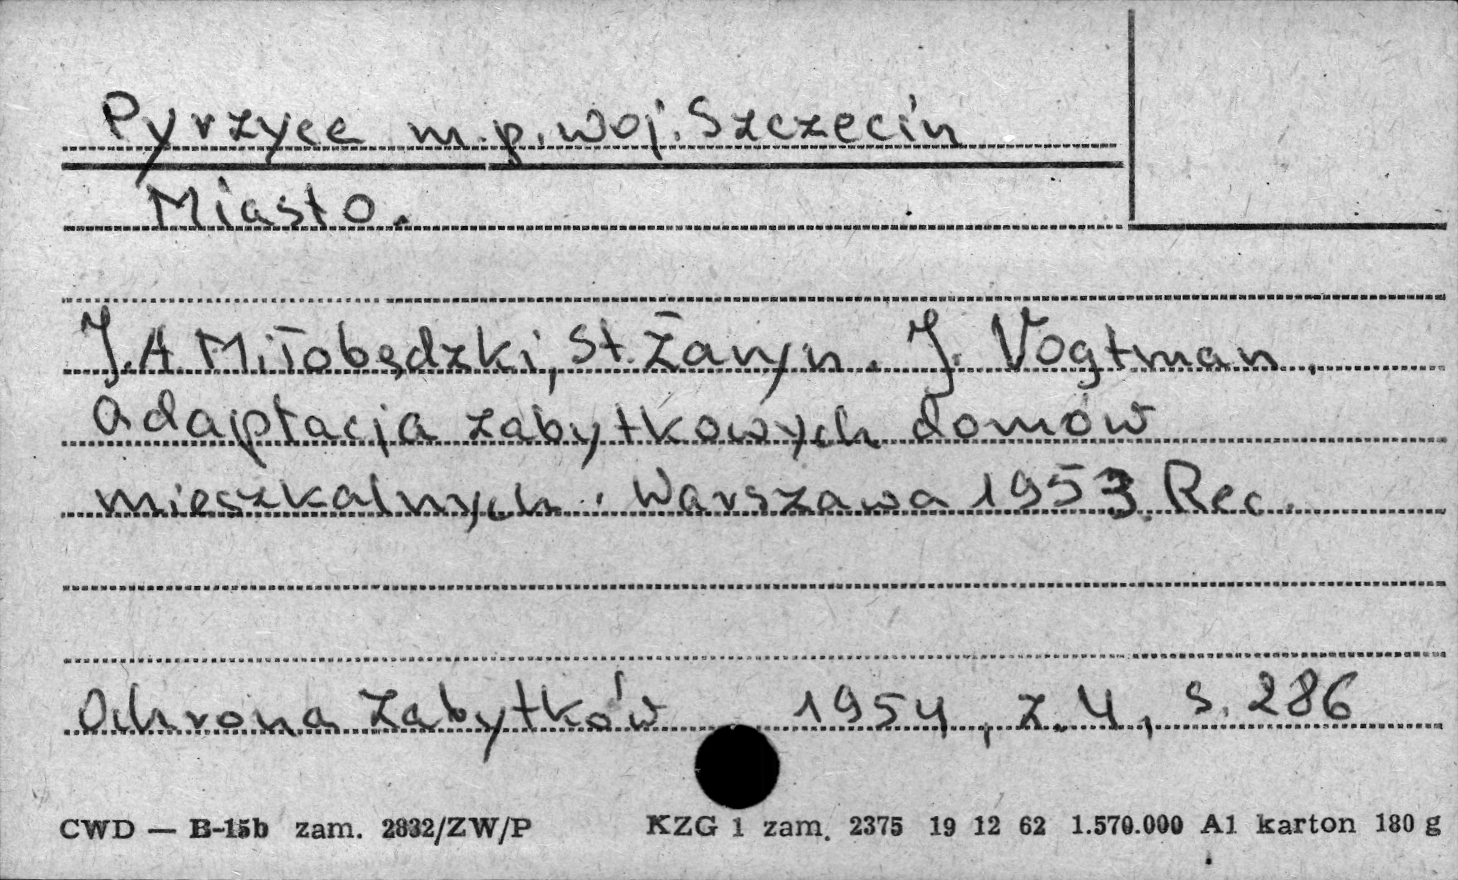 Pyrzyce m.p. woj. Szczecin
Miasto.
J.A Miłobędzki, St. Żaryn. J. Vogtman,
Adaptacja zabytkowych domów
mieszkalnych. Warszawa 1953. Rec.
Ochrona Zabytków 1954, z. 4, s. 286
CWD — B-15b zam. 2832/ZW/P KZG 1 zam. 2375 19 12 62 1.570.000 A1 karton 180 g